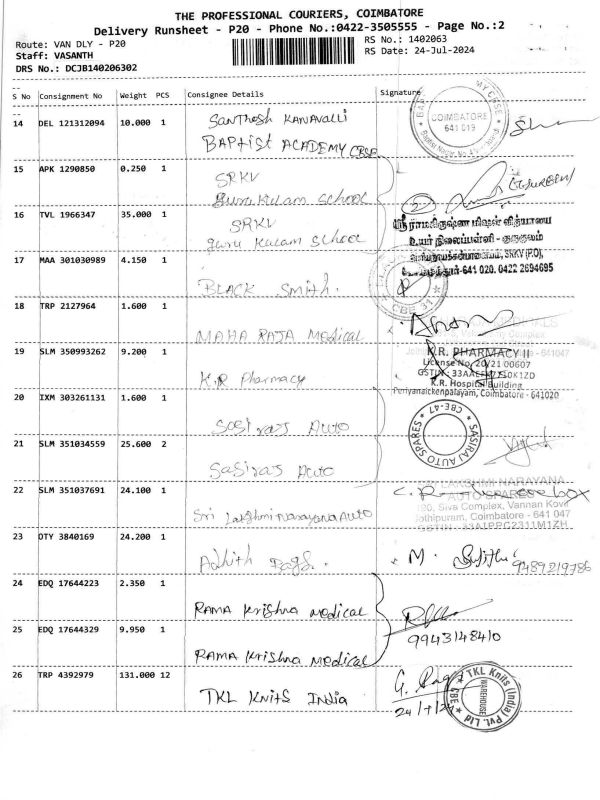 THE PROFESSIONAL COURIERS, COIMBATORE
Delivery Runsheet - P20 - Phone No.:0422-3505555 - Page No.:2
Route: VAN DLY - P20
RS No.: 1402063
Staff: VASANTH
RS Date: 24-Jul-2024
DRS No.: DCJB140206302
S No Consignment No Weight PCS Consignee Details Signature
14 DEL 121312094 10.000 1 Santhosh KANAVALLI
BAPTIST ACADEMY CBSE
COIMBATORE
641 019
15 APK 1290850 0.250 1 SRKV
gurukulam School
16 TVL 1966347 35.000 1 SRKV
guru Kulam School
ஸ்ரீ ராமகிருஷ்ண மிஷன் வித்யாலய
உயர் நிலைப்பள்ளி - குருகுலம்
SRKV (P.O),
641 020. 0422 2694695
17 MAA 301030989 4.150 1 BLACK Smith.
CBE 31
18 TRP 2127964 1.600 1 MAHA RAJA Medical
19 SLM 350993262 9.200 1 K.R Pharmacy
K.R. PHARMACY II
License No. 20/21 00607
K.R. Hospital Building
Periyanaickenpalayam, Coimbatore - 641020
20 IXM 303261131 1.600 1 Sasiraj Auto
21 SLM 351034559 25.600 2 Sasiraj Auto
SASIRAJ AUTO SPARES
CBE-47
22 SLM 351037691 24.100 1 Sri Lakshmi Narayana Auto
LAKSHMI NARAYANA
AUTO SPARES
120, Siva Complex, Vannan Kovil
Jothipuram, Coimbatore - 641 047
GSTIN : 33AIPPG2311M1ZH
23 OTY 3840169 24.200 1
M.
9489219786
24 EDQ 17644223 2.350 1 RAMA Krishna medical
25 EDQ 17644329 9.950 1 RAMA Krishna medical
9943148410
26 TRP 4392979 131.000 12 TKL KnitS India
TKL Knits (India) Pvt. Ltd
WAREHOUSE
CBE